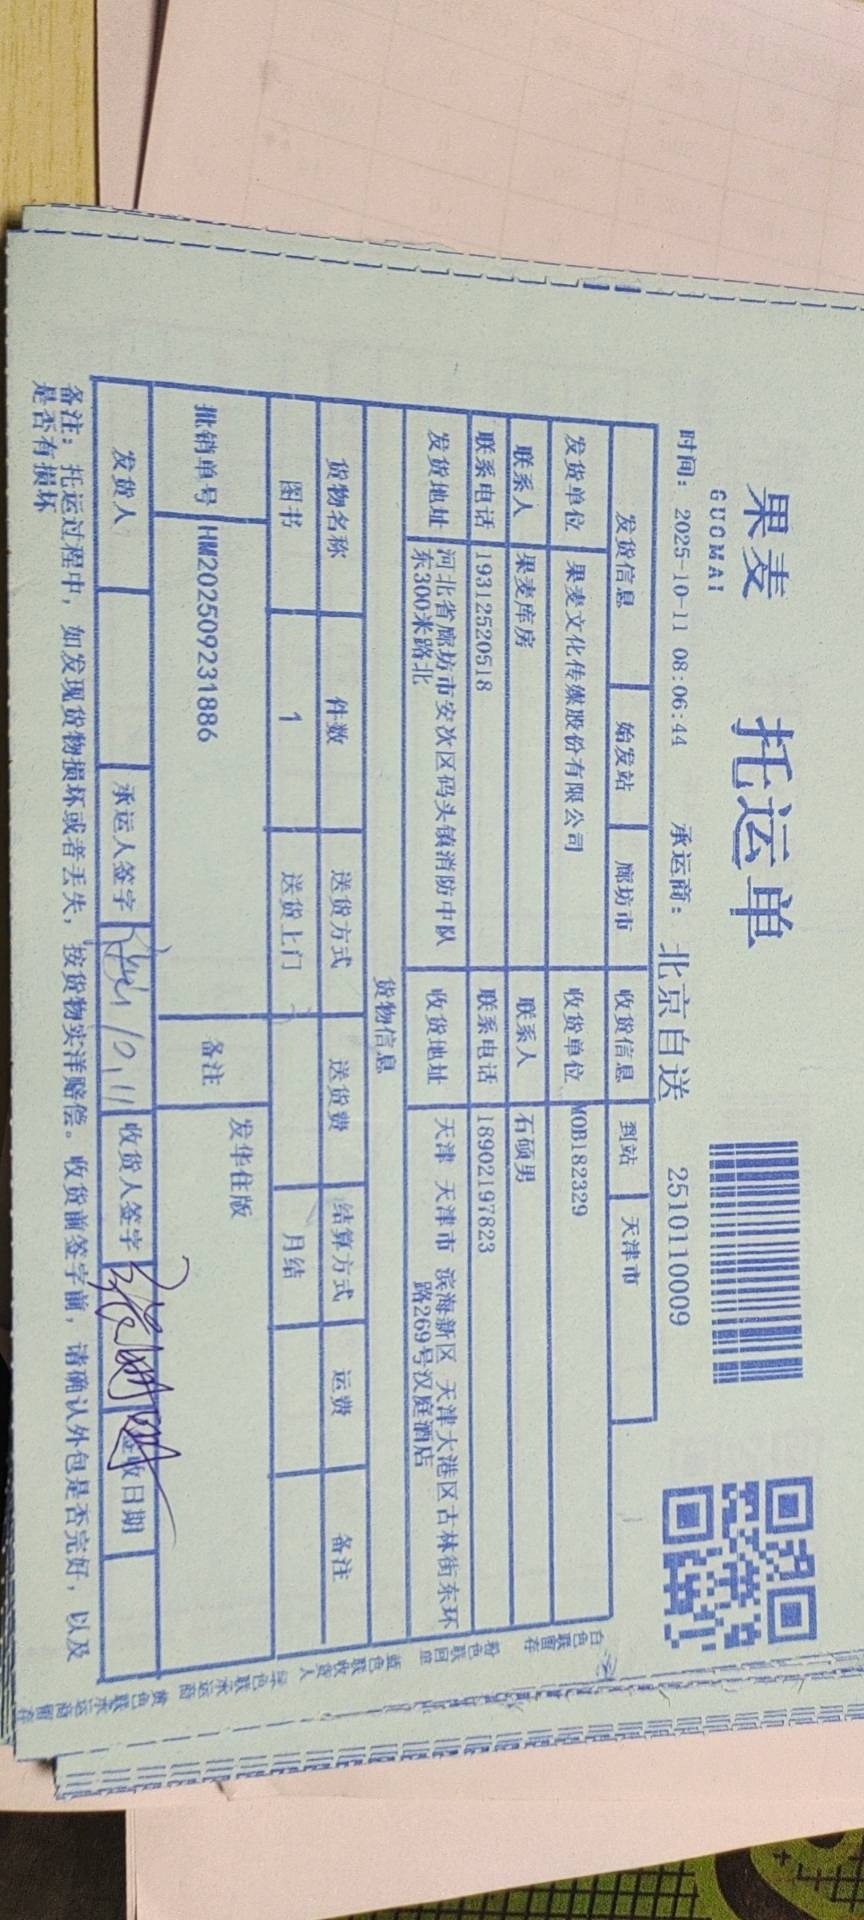 果麦 托运单
GUOMAI
时间： 2025-10-11 08:06:44 承运商： 北京自送 2510110009
发货信息 始发站 廊坊市 收货信息 到站 天津市
发货单位 果麦文化传媒股份有限公司 收货单位 MOB182329
联系人 果麦库房 联系人 石硕男
联系电话 19312520518 联系电话 18902197823
发货地址 河北省廊坊市安次区码头镇消防中队
东300米路北
收货地址 天津 天津市 滨海新区 天津大港区古林街东环
路269号汉庭酒店
货物信息
货物名称 件数 送货方式 送货费 结算方式 运费 备注
图书 1 送货上门 月结
批销单号 HM202509231886 备注 发华住版
发货人 承运人签字 10.11 收货人签字 签收日期
备注：托运过程中，如发现货物损坏或者丢失，按货物实洋赔偿。收货前签字前，请确认外包是否完好，以及
是否有损坏
白色联留存
粉色联回单
蓝色联收货人
绿色联承运商
黄色联承运商留存